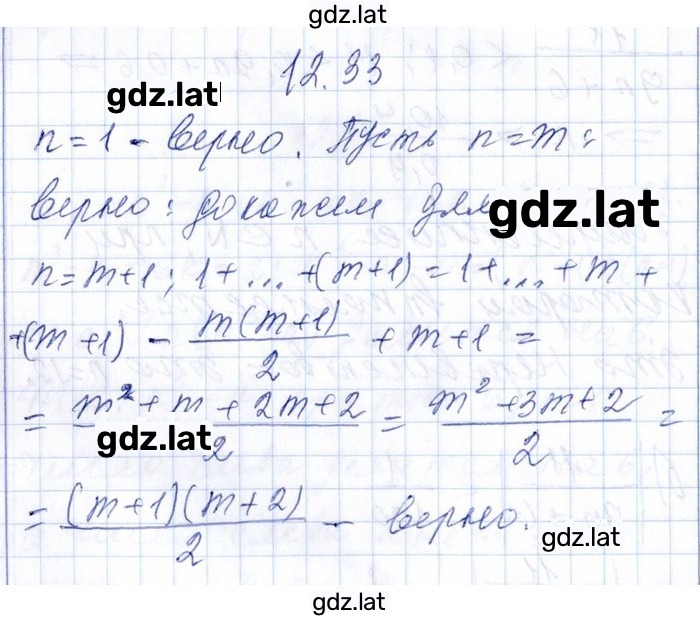 gdz.lat
12.33
gdz.lat
n=1 - верно. Пусть n=m:
верно: докажем для
gdz.lat
n=m+1; 1+...+(m+1)=1+...+m+
+(m+1) - \frac{m(m+1)}{2} + m+1 =
= \frac{m²+m+2m+2}{2} = \frac{m²+3m+2}{2} =
gdz.lat
= \frac{(m+1)(m+2)}{2} - верно.
gdz.lat
gdz.lat